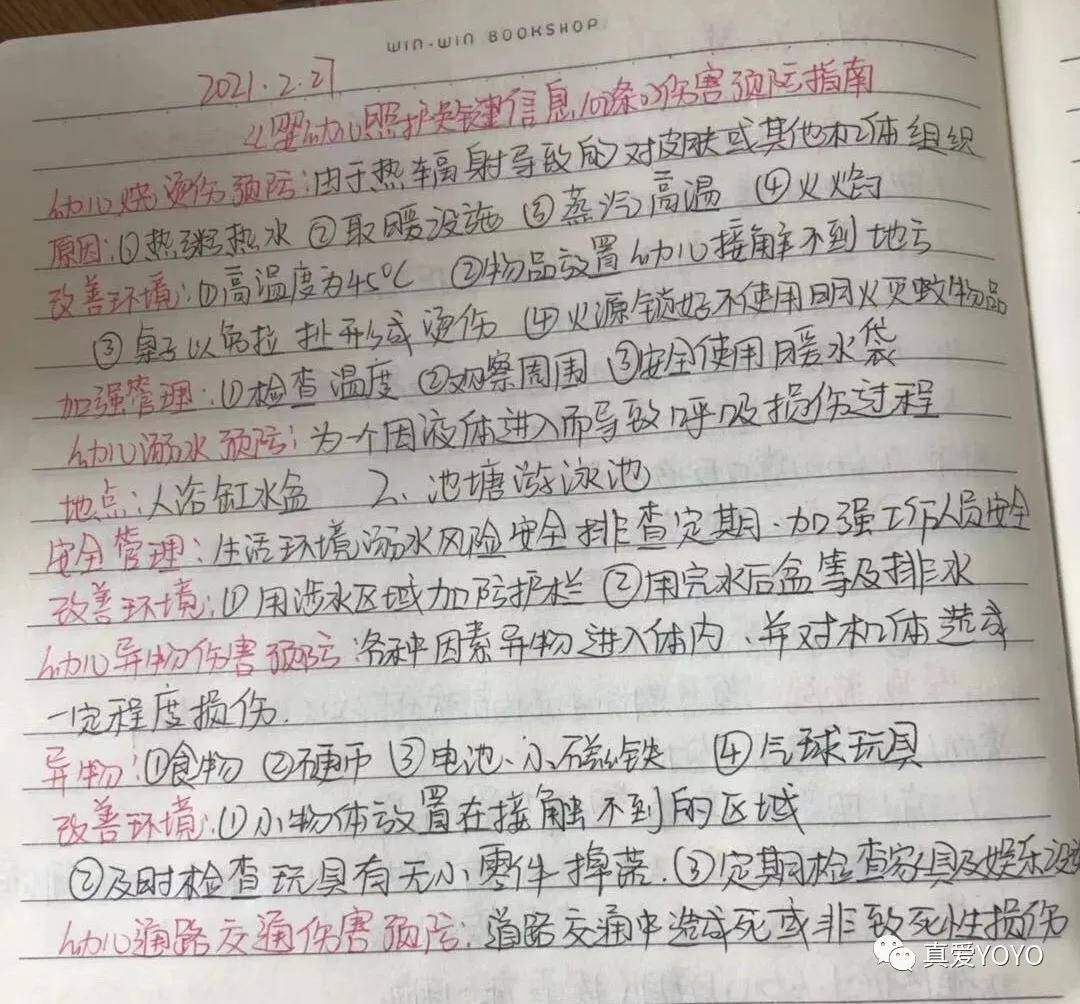 WIN-WIN BOOKSHOP
2021.2.27
婴幼儿照护关键信息10条の伤害预防指南
幼儿烧烫伤预防:由于热辐射导致的对皮肤或其他机体组织
原因:①热粥热水 ②取暖设施 ③蒸汽高温 ④火焰
改善环境:①高温度为45℃ ②物品放置幼儿接触不到地方
③桌子以免拉扯形成烫伤 ④火源锁好不使用明火灭蚊物品
加强管理:①检查温度 ②观察周围 ③安全使用暖水袋
幼儿溺水预防:为一个因液体进入而导致呼吸损伤过程
地点:1、浴缸水盆 2、池塘游泳池
安全管理:生活环境溺水风险安全排查定期、加强工作人员安全
改善环境:①用涉水区域加防护栏 ②用完水后盆等及排水
幼儿异物伤害预防:各种因素异物进入体内、并对机体造成
一定程度损伤.
异物:①食物 ②硬币 ③电池、小磁铁 ④气球玩具
改善环境:①小物体放置在接触不到的区域
②及时检查玩具有无小零件掉落.③定期检查家具及娱乐设
幼儿道路交通伤害预防.道路交通中造成死或非致死性损伤
真爱YOYO